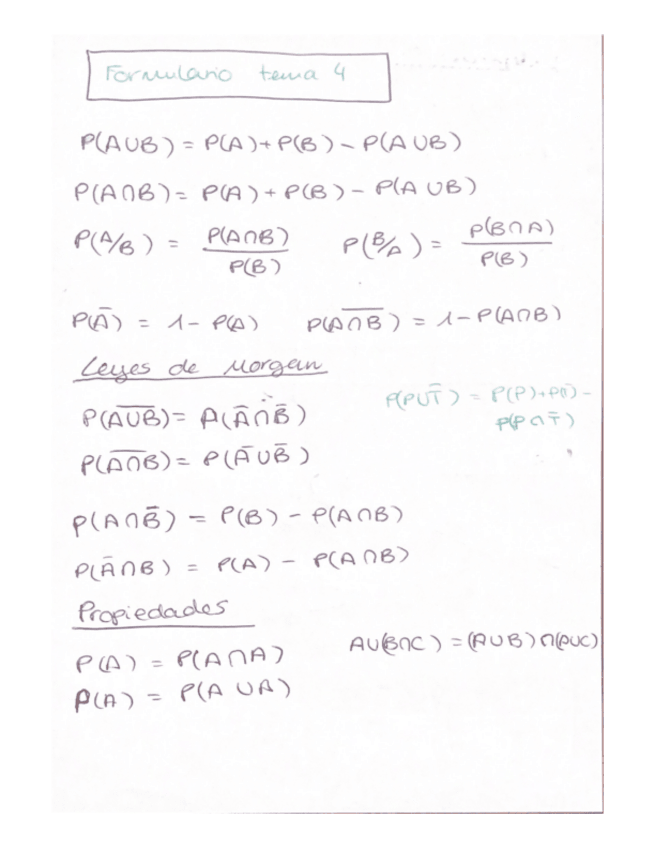 Formulario tema 4
P(A∪B) = P(A)+P(B) - P(A∪B)
P(A∩B) = P(A)+P(B) - P(A∪B)
P(A/B) = P(A∩B)/P(B) P(B/A) = P(B∩A)/P(B)
P(Ā) = 1 - P(A) P(A̅∩̅B̅) = 1 - P(A∩B)
Leyes de Morgan
P(A̅∪̅B̅) = P(Ā∩B̄)
P(P∪T̄) = P(P)+P(T̄) -
P(P∩T̄)
P(A̅∩̅B̅) = P(Ā∪B̄)
P(A∩B̄) = P(B) - P(A∩B)
P(Ā∩B) = P(A) - P(A∩B)
Propiedades
P(A) = P(A∩A) A∪(B∩C) = (A∪B)∩(A∪C)
P(A) = P(A∪A)